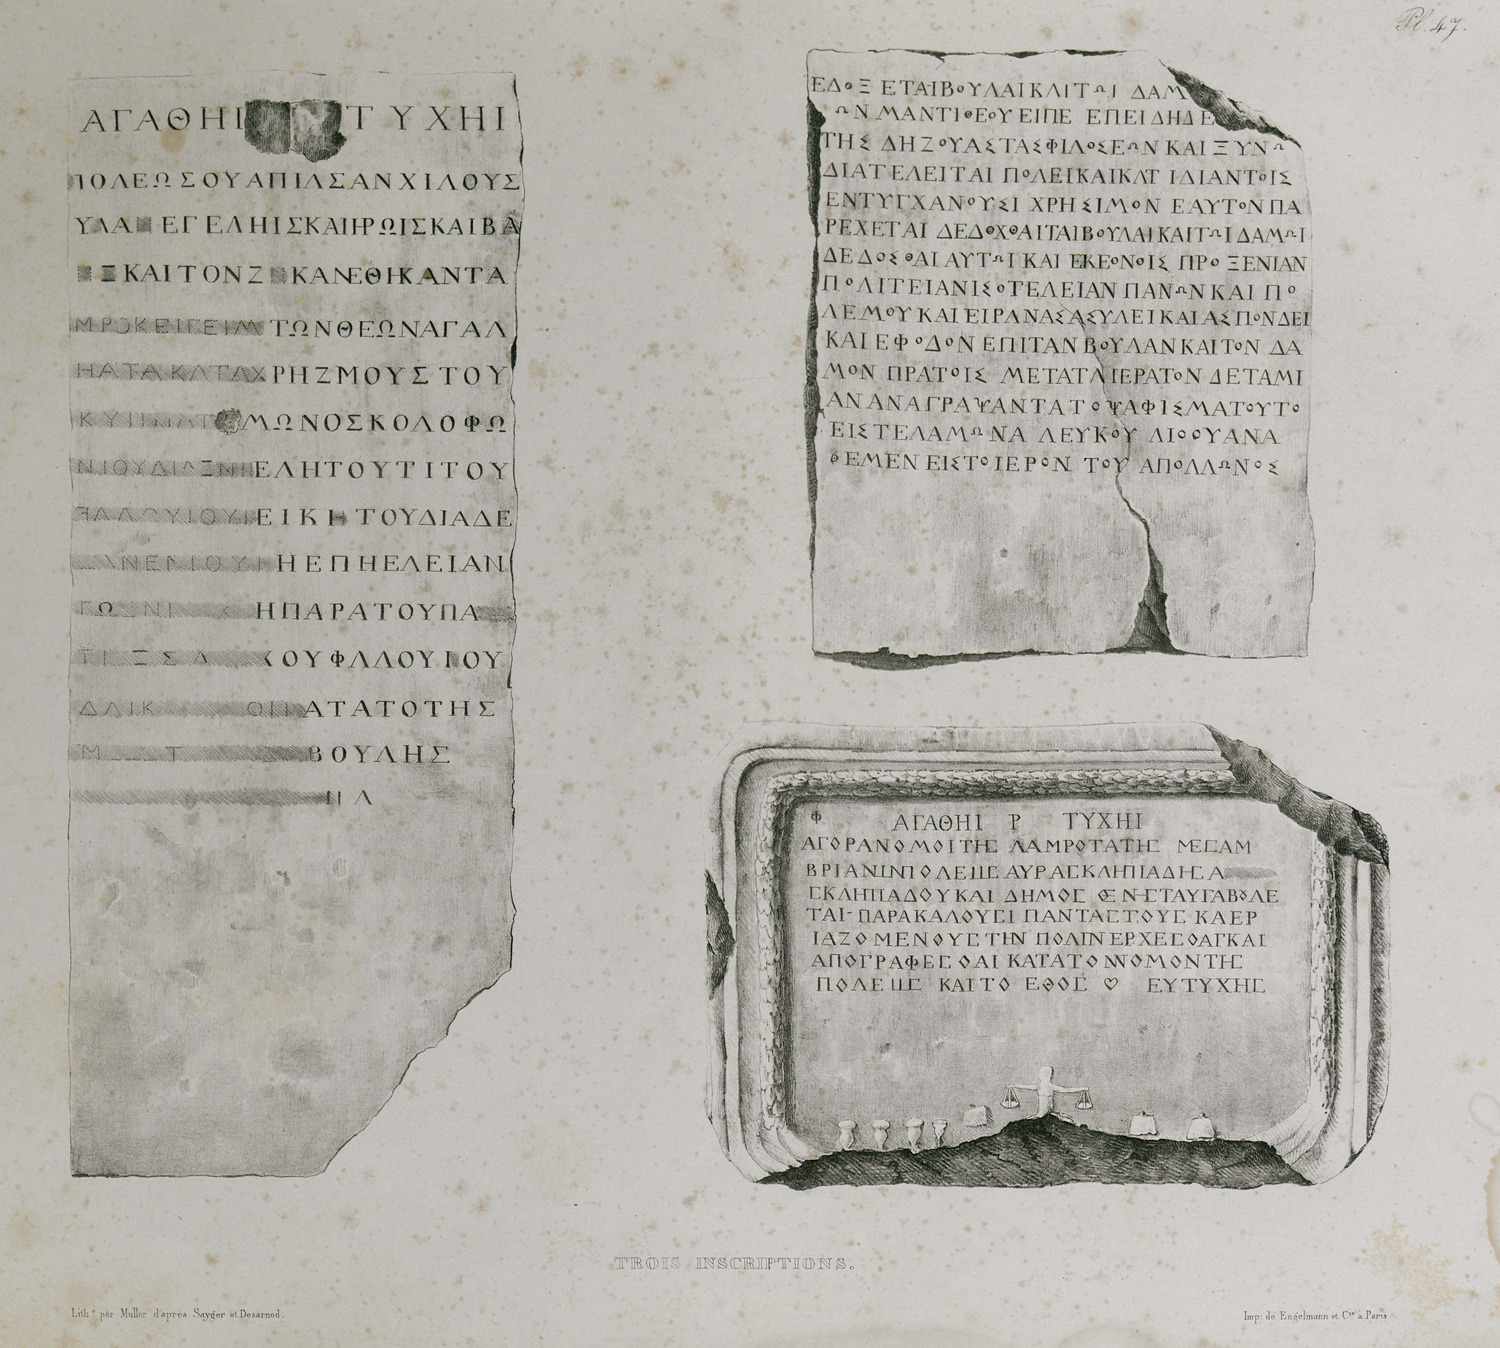 Pl. 47.
ΑΓΑΘΗΙ ΤΥΧΗΙ
ΠΟΛΕΩΣΟΥΑΠΙΛΣΑΝΧΙΛΟΥΣ
ΥΛΑ ΕΓΕΛΗΙΣΚΑΙΗΡΩΙΣΚΑΙΒΑ
ΞΚΑΙΤΟΝΖ ΚΑΝΕΘΙΚΑΝΤΑ
ΤΩΝΘΕΩΝΑΓΑΛ
ΗΑΤΑΚΑΤΑΧΡΗΖΜΟΥΣΤΟΥ
ΜΩΝΟΣΚΟΛΟΦΩ
ΕΛΗΤΟΥΤΙΤΟΥ
ΕΙΚΙ ΤΟΥΔΙΑΔΕ
ΗΕΠΗΕΛΕΙΑΝ
ΗΠΑΡΑΤΟΥΠΑ
ΟΥΦΛΛΟΥΙΟΥ
ΑΤΑΤΟΤΗΣ
ΒΟΥΛΗΣ
ΕΔΟΞ ΕΤΑΙΒΟΥΛΑΙΚΛΙΤΩΙ ΔΑΜ
ΩΝ ΜΑΝΤΙΘΕΟΥ ΕΙΠΕ ΕΠΕΙΔΗΔΕ
ΤΗΣ ΔΗΖΟΥΑΣΤΑΣΦΙΛΟΣΕΩΝ ΚΑΙ ΞΥΝΩ
ΔΙΑΤΕΛΕΙΤΑΙ ΠΟΛΕΙΚΑΙΚΑΤ ΙΔΙΑΝΤΟΙΣ
ΕΝΤΥΓΧΑΝΟΥΣΙ ΧΡΗΣΙΜΟΝ ΕΑΥΤΟΝ ΠΑ
ΡΕΧΕΤΑΙ ΔΕΔΟΧΘΑΙΤΑΙΒΟΥΛΑΙΚΑΙΤΩΙΔΑΜΩΙ
ΔΕΔΟΣΘΑΙ ΑΥΤΩΙ ΚΑΙ ΕΚΕΟΝΟΙΣ ΠΡΟΞΕΝΙΑΝ
ΠΟΛΙΤΕΙΑΝΙΣΟΤΕΛΕΙΑΝ ΠΑΝΩΝ ΚΑΙ ΠΟ
ΛΕΜΟΥ ΚΑΙ ΕΙΡΑΝΑΣΑΣΥΛΕΙ ΚΑΙ ΑΣΠΟΝΔΕΙ
ΚΑΙ ΕΦΟΔΟΝ ΕΠΙΤΑΝ ΒΟΥΛΑΝ ΚΑΙΤΟΝ ΔΑ
ΜΟΝ ΠΡΑΤΟΙΣ ΜΕΤΑΤΑΙΕΡΑΤΟΝ ΔΕΤΑΜΙ
ΑΝ ΑΝΑΓΡΑΨΑΝΤΑ ΤΟΨΑΦΙΣΜΑΤΟΥΤΟ
ΕΙΣΤΕΛΑΜΩΝΑ ΛΕΥΚΟΥ ΛΙΟΟΥΑΝΑ
ΘΕΜΕΝ ΕΙΣΤΟΙΕΡΟΝ ΤΟΥ ΑΠΟΛΛΩΝΟΣ
Φ ΑΓΑΘΗΙ Ρ ΤΥΧΗΙ
ΑΓΟΡΑΝΟΜΟΙΤΗΣ ΛΑΜΡΟΤΑΤΗΣ ΜΕΣΑΜ
ΒΡΙΑΝΙΝΠΟΛΕΩΣ ΑΥΡΑΣΚΛΗΠΙΑΔΗΣΑ
ΣΚΛΗΠΑΔΟΥΚΑΙ ΔΗΜΟΣ ΘΕΝΣΤΑΥΓΑΒΟΛΕ
ΤΑΙ ΠΑΡΑΚΑΛΟΥΣΙ ΠΑΝΤΑΣΤΟΥΣ ΚΑΕΡ
ΙΑΖΟΜΕΝΟΥΣΤΗΝ ΠΟΛΙΝΕΡΧΕΣΟΑΓΚΑΙ
ΑΠΟΓΡΑΦΕΣΟΑΙ ΚΑΤΑΤΟΝΝΟΜΟΝΤΗΣ
ΠΟΛΕΩΣ ΚΑΙΤΟ ΕΘΟΣ ♡ ΕΥΤΥΧΗΣ
TROIS INSCRIPTIONS.
Lithᵉ par Muller d'après Sayger et Desarnod.
Imp. de Engelmann et Cⁱᵉ à Paris